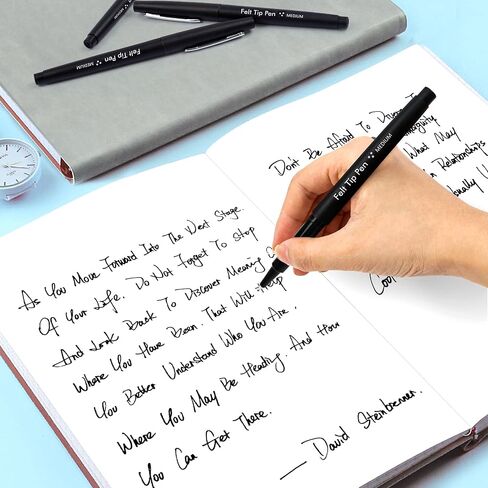 Felt Tip Pen MEDIUM
Felt Tip Pen MEDIUM
As You Move Forward Into The Next Stage
Of Your Life. Do Not Forget To Stop
And Look Back To Discover Meaning
Where You Have Been. That Will Help
You Better Understand Who You Are.
Where You May Be Heading. And How
You Can Get There.
— David Steinbrenner.
Don't Be Afraid To
What May
Relationships
Felt Tip Pen MEDIUM